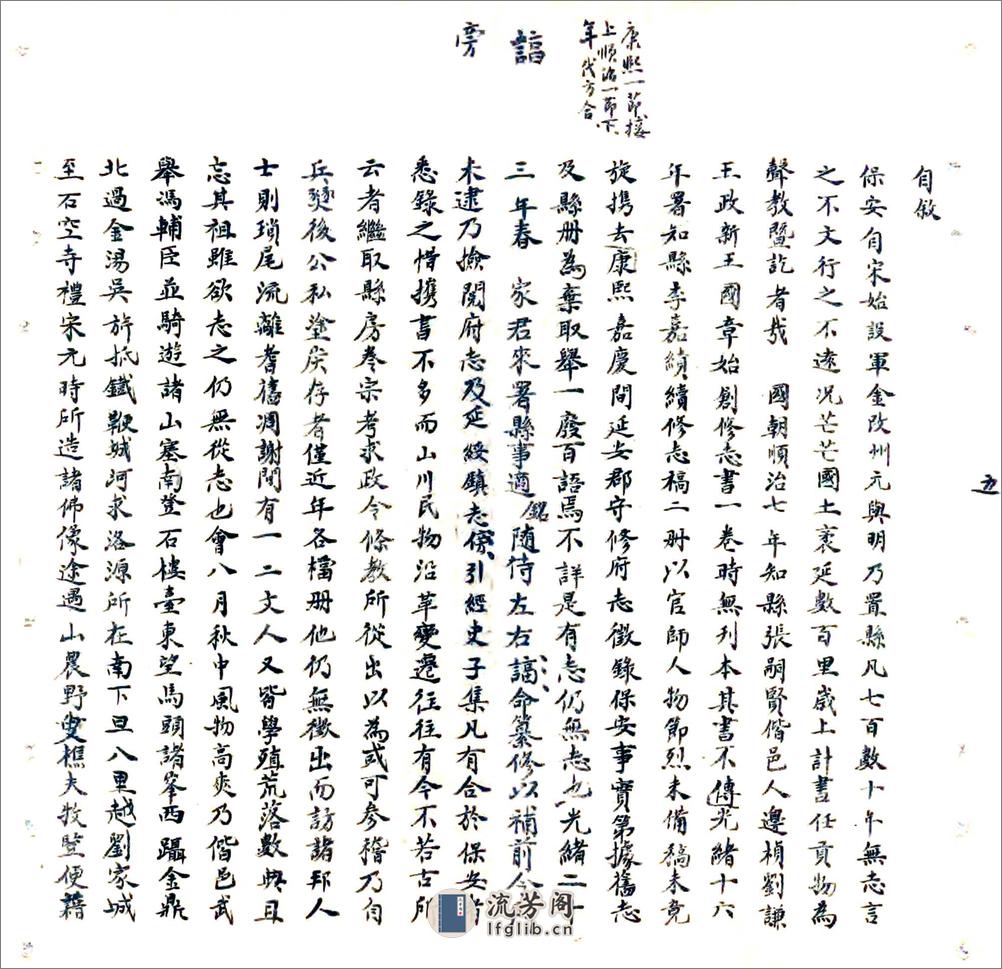 康熙一節接
上順治一節下
年代方合
謟
旁
自敘
保安自宋始設軍金改州元與明乃置縣凡七百數十年無志言
之不文行之不遠況芒芒國土袤延數百里歲上計書任貢物為
聲教暨訖者哉　國朝順治七年知縣張嗣賢偕邑人邊楨劉謙
王政新王國章始創修志書一卷時無刊本其書不傳光緒十六
年署知縣李嘉績續修志稿二冊以官師人物節烈未備稿未竟
旋携去康熙嘉慶間延安郡守修府志徵錄保安事實第據舊志
及縣冊為棄取舉一廢百語焉不詳是有志仍無志也光緒二十
三年春　家君來署縣事適銘隨待左右謟命纂修以補前人
未逮乃撿閱府志及延綏鎮志傍引經史子集凡有合於保安者
悉錄之惜携書不多而山川民物沿革變遷往往有今不若古所
云者繼取縣房卷宗考求政令條教所從出以為或可參稽乃自
兵燹後公私塗炭存者僅近年各檔冊他仍無徵出而訪諸邦人
士則瑣尾流離耆舊凋謝間有一二文人又皆學殖荒落數典且
忘其祖雖欲志之仍無從志也會八月秋中風物高爽乃偕邑武
舉馮輔臣並騎遊諸山塞南登石樓臺東望馬頭諸峯西躡金鼎
北過金湯吳旂抵鐵鞭城河求洛源所在南下旦八里越劉家城
至石空寺禮宋元時所造諸佛像途遇山農野叟樵夫牧豎便藉
五
流芳阁
lfglib.cn